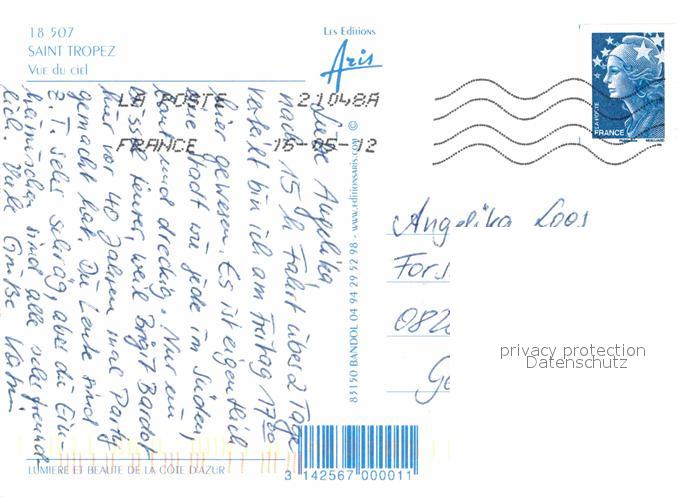 18 507
SAINT TROPEZ
VUE DU CIEL
Les Editions
Aris
LA POSTE 21048A
FRANCE 15-05-12
LA POSTE
FRANCE
Liebe Angelika,
nach 15 h Fahrt über 2 Tage
verteilt bin ich am Freitag 17⁰⁰
hier gewesen. Es ist eigentlich
eine Stadt wie jede im Süden,
laut und dreckig. Nur ein
bissel teurer, weil Brigit Bardot
hier vor 40 Jahren mal Party
gemacht hat. Die Leute sind
z. T. sehr schräg, aber die Ein-
heimischen sind alle sehr freund-
lich. Viele Grüße
83150 BANDOL 04 94 29 52 98 - www.editionsaris.com ©
Angelika Loos
For
082
G
privacy protection
Datenschutz
LUMIERE ET BEAUTE DE LA CÔTE D'AZUR
3 142567 000011